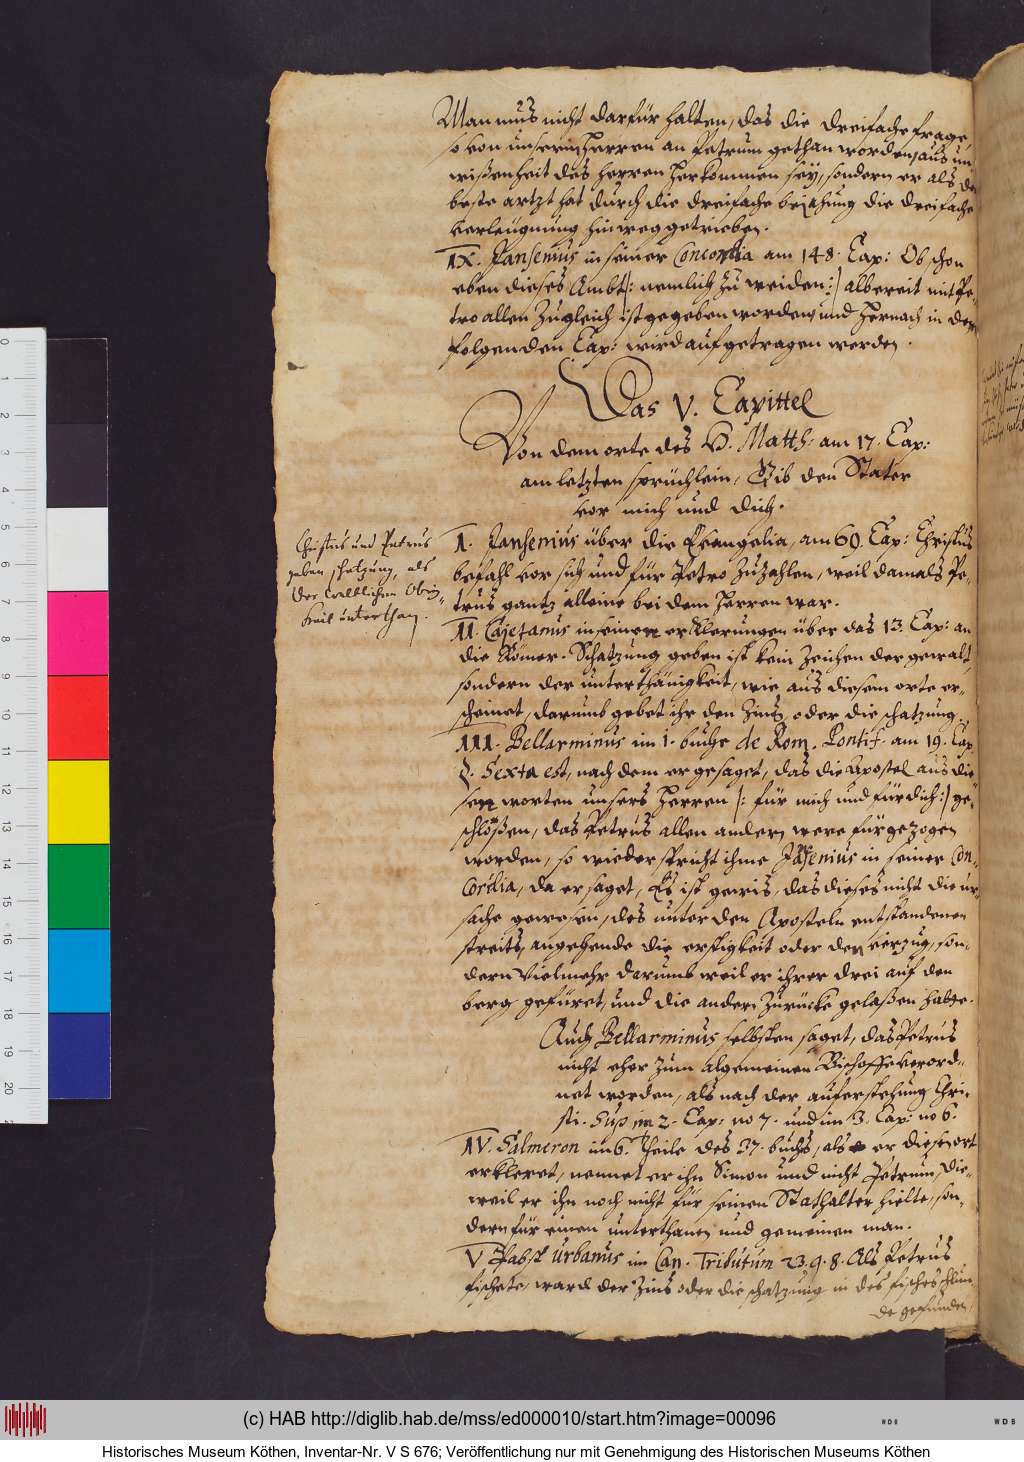 Man mus nicht darfür halten, das die dreifache frage,
so von unserm Herren an Petrum gethan worden, aus un
wißenheit des Herren herkommen sey, sondern er als der
beste artzt hat durch die dreifache bejahung die dreifache
verleugnung hinweg getrieben.
IX. Jansenius in seiner Concordia am 148. Cap: Ob schon
eben dieses Ambt |: nemlich zu weiden :| albereit mit Pe-
tro allen zugleich ist gegeben worden, und hernach in dem
folgenden Cap: wird aufgetragen werden.
Das V. Capittel
Von dem orte des H. Matth: am 17. Cap:
am letzten sprüchlein, Gib den Stater
vor mich und dich.
Christus und Petrus
geben schatzung, als
der weltlichen Obrig-
keit unterthan.
I. Jansenius über die Evangelia, am 69. Cap: Christus
befahl vor sich und für Petro zu zahlen, weil damals Pe-
trus gantz alleine bei dem Herren war.
II. Cajetanus in seinem erklerungen über das 13. Cap: an
die Römer. Schatzung geben ist kein zeichen der gewalt
sondern der unterthänigkeit, wie aus diesem orte er-
scheinet, darumb gebet ihr den Zins oder die schatzung.
III. Bellarminus im 1. buche de Rom. Pontif. am 19. Cap
§. Sexta est, nach dem er gesaget, das die Apostel aus die
sen worten unsers Herren |: für mich und für dich :| ge-
schloßen, das Petrus allen andern were fürgezogen
worden, so wiederspricht ihme Jansenius in seiner Con-
cordia, da er saget, Es ist gewis, das dieses nicht die ur-
sache gewesen, des unter den Aposteln entstandenen
streits, angehende die erstigkeit oder den vorzug, son-
dern vielmehr darumb weil er ihrer drei auf den
berg gefüret, und die andern zurücke gelaßen habe.
Auch Bellarminus selbsten saget, das Petrus
nicht eher zum algemeinen Bischoffe verord-
net worden, als nach der auferstehung Chri-
sti. Sup im 2. Cap: no 7. und im 3. Cap. no 6.
IV. Salmeron im 6. Theile des 37. buchs, als er diese wort
erkleret, nennet er ihn Simon und nicht Petrum, die-
weil er ihn noch nicht für seinen Stathalter hielte, son-
dern für einen unterthanen und gemeinen man.
V Pabst Urbanus im Can. Tributum 23. q. 8. Als Petrus
fischete, ward der Zins oder die schatzung in des fisches schlun-
de gefunden,
(c) HAB http://diglib.hab.de/mss/ed000010/start.htm?image=00096
Historisches Museum Köthen, Inventar-Nr. V S 676; Veröffentlichung nur mit Genehmigung des Historischen Museums Köthen